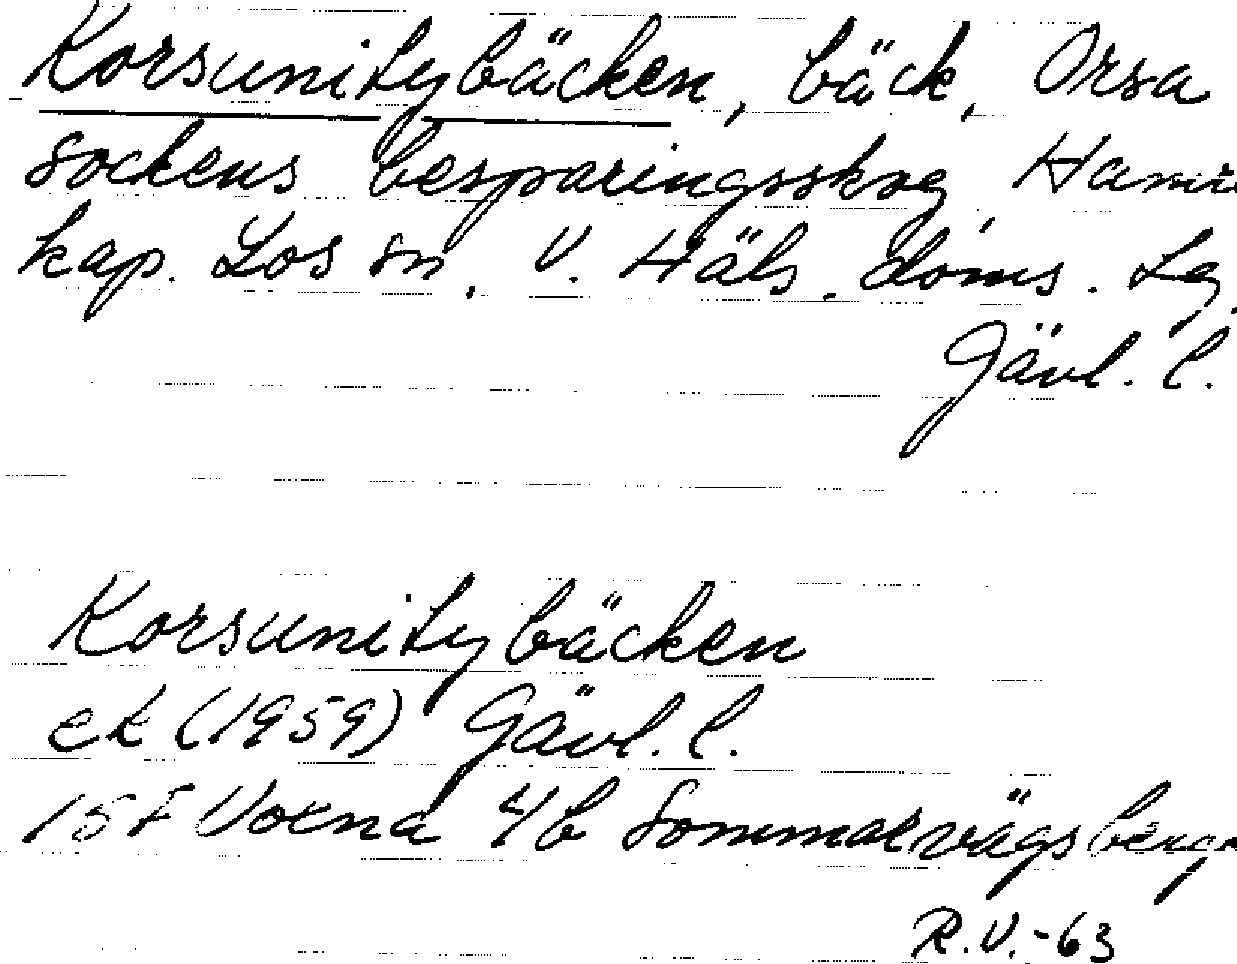 Korsunitybäcken, bäck, Orsa
sockens besparingsskog, Hamra
kap. Los sn, V. Häls. doms. Lg,
Gävl. l.
Korsunitybäcken
ek (1959) Gävl. l.
15F Voxna 4b Sommarvägsberget
R.V.-63